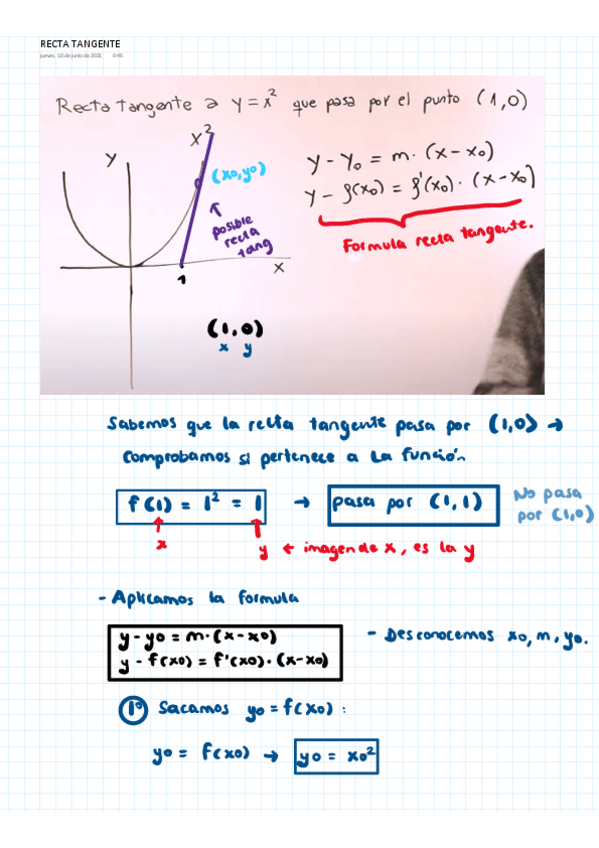 RECTA TANGENTE
jueves, 10 de junio de 2021 0:46
Recta tangente a y = x² que pasa por el punto (1,0)
x²
y
(x0,y0)
posible
recta
tang
x
1
(1,0)
x y
y - y₀ = m · (x - x₀)
y - f(x₀) = f'(x₀) · (x - x₀)
Formula recta tangente.
Sabemos que la recta tangente pasa por (1,0) →
Comprobamos si pertenece a La función
f(1) = 1² = 1 → pasa por (1,1) No pasa
por (1,0)
x y ← imagen de x, es la y
- Aplicamos la formula
y - y0 = m · (x - x0) - Desconocemos x0, m, y0.
y - f(x0) = f'(x0) · (x - x0)
1º Sacamos y0 = f(x0) :
y0 = f(x0) → y0 = x0²